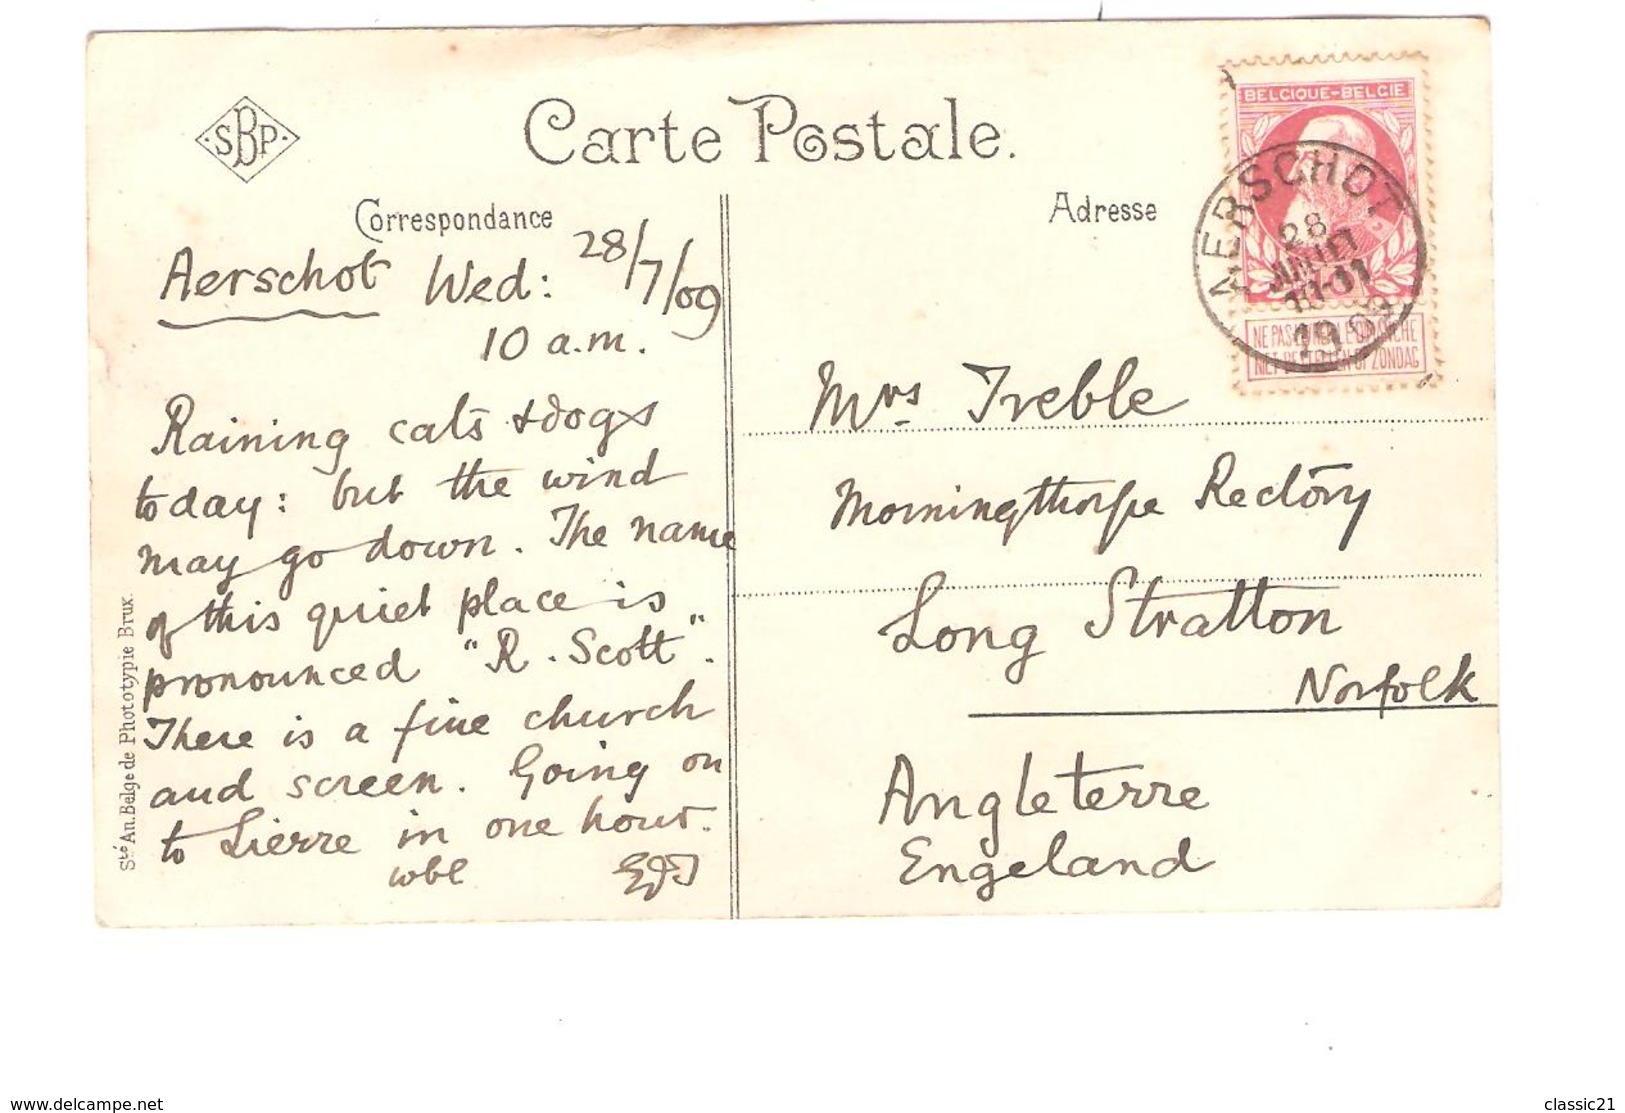 SBP
Carte Postale.
Correspondance
Adresse
BELGIQUE-BELGIE
AERSCHOT
28
10-11
1909
NE PAS LIVRER LE DIMANCHE
NIET BESTELLEN OP ZONDAG
Aerschot Wed: 28/7/09
10 a.m.
Raining cats & dogs
today: but the wind
may go down. The name
of this quiet place is
pronounced "R. Scott".
There is a fine church
and screen. Going on
to Lierre in one hour.
wbl EJT
Mrs Treble
Morningthorpe Rectory
Long Stratton
Norfolk
Angleterre
Engeland
Sté An. Belge de Phototypie Brux.
www.delcampe.net
classic21